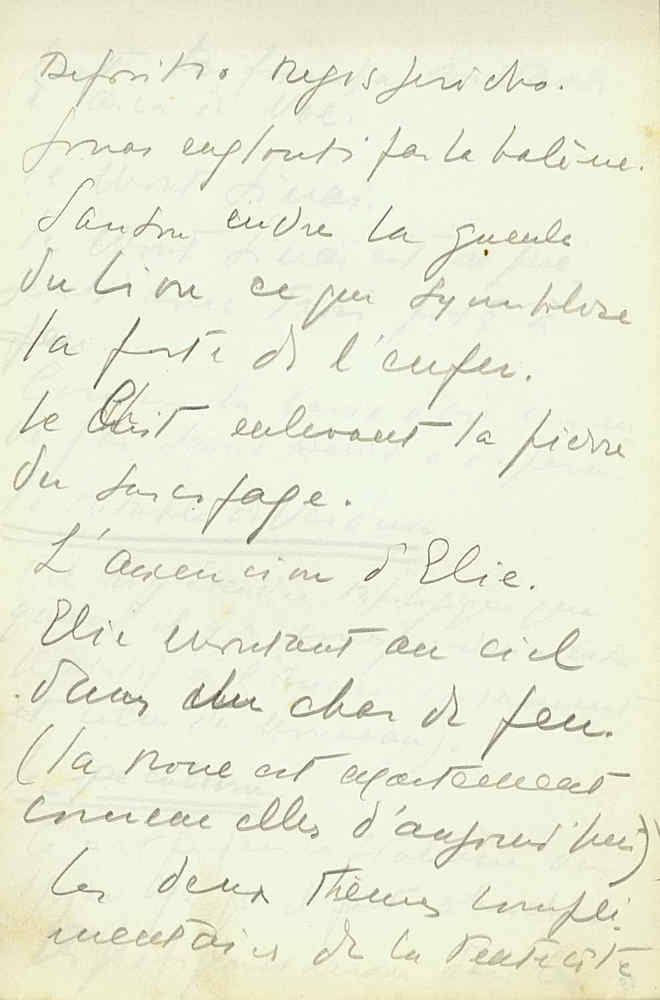 Depositio Regis Jericho.
Jonas englouti par la baleine.
Sanson ouvre la gueule
du lion ce qui symbolise
la porte de l'enfer.
le Christ enlevant la pierre
du sarcofage.
L'ascencion d'Elie.
Elie montant au ciel
dans un char de feu.
(la roue est exactement
comme elles d'aujourd'hui)
les deux thèmes compli-
mentaires de la Pentecôte